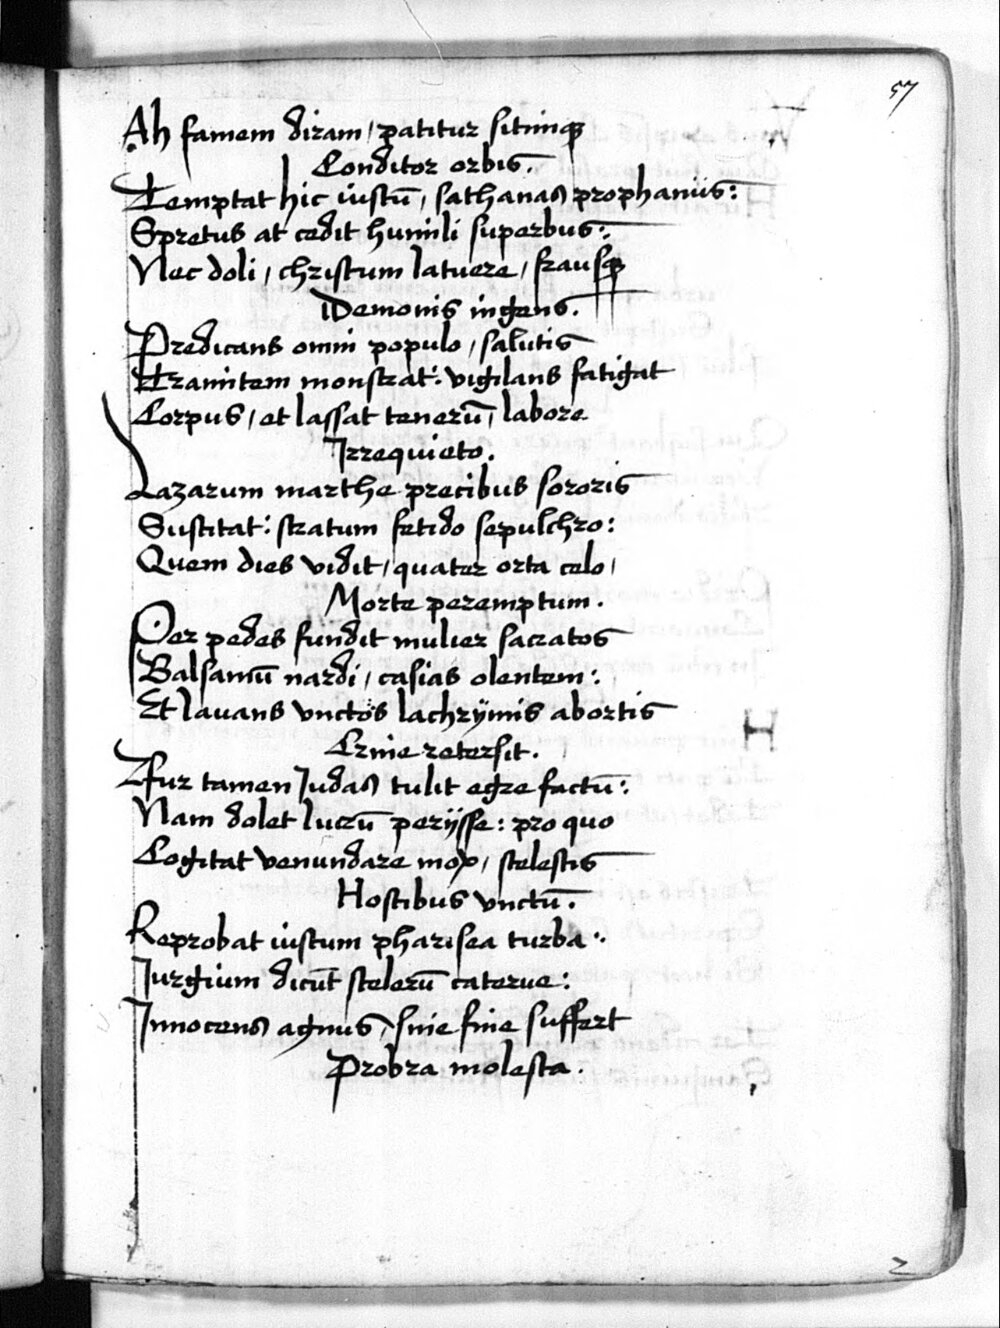 57
Ah famem diram / patitur sitimq̃
Conditor orbis.
Temptat hic iustū, sathanas prophanus:
Spretus at cedit humili superbus:
Nec doli / christum latuere / frausq̃
Demonis ingens.
Predicans omni populo / salutis
Tramitem monstrat: vigilans fatigat
Corpus / et lassat tenerū / labore
Irrequieto.
Lazarum marthe precibus sororis
Suscitat: stratum fetido sepulchro:
Quem dies vidit / quater orta celo /
Morte peremptum.
Per pedes fundit mulier sacratos
Balsamū nardi / casias olentem:
Et lauans vnctos lachrÿmis abortis
Crine retersit.
Fur tamen Iudas tulit egre factū:
Nam dolet lucrū perijsse: pro quo
Cogitat venundare mox / scelestis
Hostibus vnctū.
Reprobat iustum pharisea turba:
Iurgium dicūt scelerū caterue:
Innocens agnus / sine fine suffert
Probra molesta.